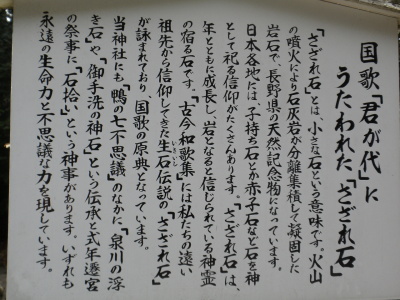 国歌「君が代」に
うたわれた「さざれ石」
「さざれ石」とは、小さな石という意味です。火山
の噴火により石灰岩が分離集積して凝固した
岩石で、長野県の天然記念物になっています。
日本各地には、子持ち石とか赤子石など石を神
として祀る信仰がたくさんあります。「さざれ石」は、
年とともに成長し、岩となると信じられている神霊
の宿る石です。「古今和歌集」には私たちの遠い
祖先から信仰してきた生石伝説の「さざれ石」
が詠まれており、国歌の原典となっています。
当神社にも「鴨の七不思議」のなかに「泉川の浮
き石」や、「御手洗の神石」という伝承と式年遷宮
の祭事に「石拾い」という神事があります。いずれも
永遠の生命力と不思議な力を現しています。